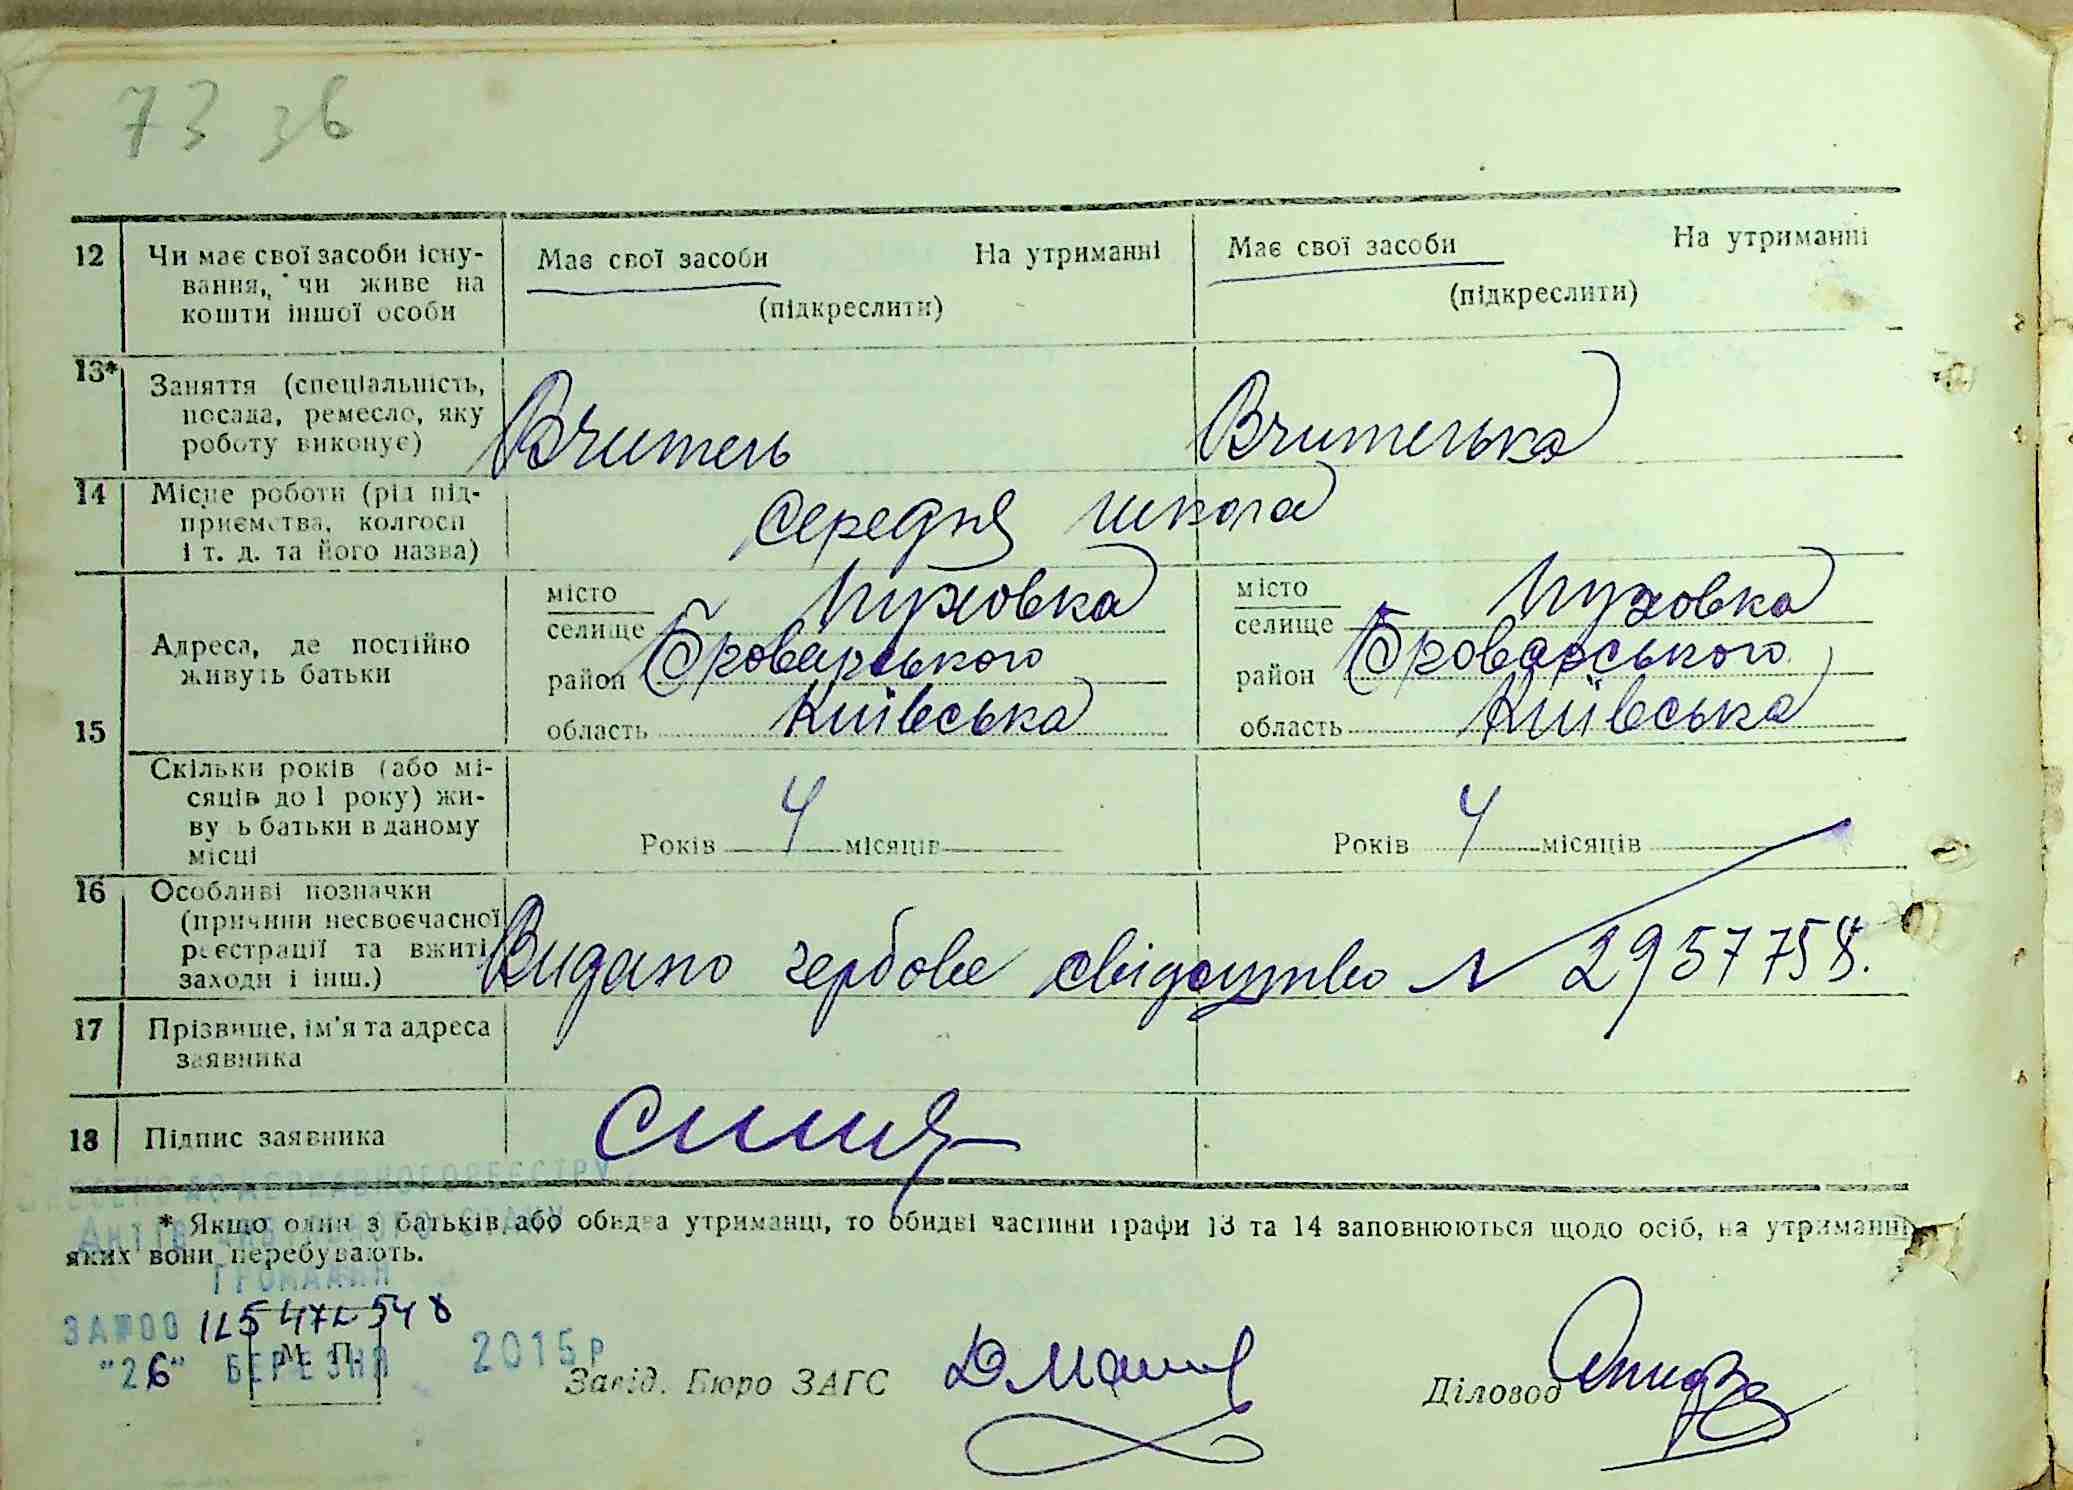 73 зв
12 Чи має свої засоби існу- Має свої засоби На утриманні Має свої засоби На утриманні
вання, чи живе на
кошти іншої особи (підкреслити) (підкреслити)
13* Заняття (спеціальність,
посада, ремесло, яку
роботу виконує) Вчитель Вчителька
14 Місце роботи (рід під-
приємства, колгосп середня школа
і т. д. та його назва)
місто Пуховка місто Пуховка
селище селище
Адреса, де постійно Броварського Броварського
живуть батьки район район
15 область Київська область Київська
Скільки років (або мі-
сяців до 1 року) жи-
ву ь батьки в даному
місці Років 4 місяців Років 4 місяців
16 Особливі позначки
(причини несвоєчасної
реєстрації та вжиті Видано гербове свідоцтво № 2957758.
заходи і інш.)
17 Прізвище, ім'я та адреса
заявника
18 Підпис заявника
ДЕРЖАВНОГО РЕЄСТРУ
АКТІВ ЦИВІЛЬНОГО СТАНУ
* Якщо один з батьків або обидва утриманці, то обидві частини графи 13 та 14 заповнюються щодо осіб, на утриманні
яких вони перебувають.
ГРОМАДЯН
ЗА №00
"26" БЕРЕЗНЯ 2015 р
М. П.
Завід. Бюро ЗАГС Діловод